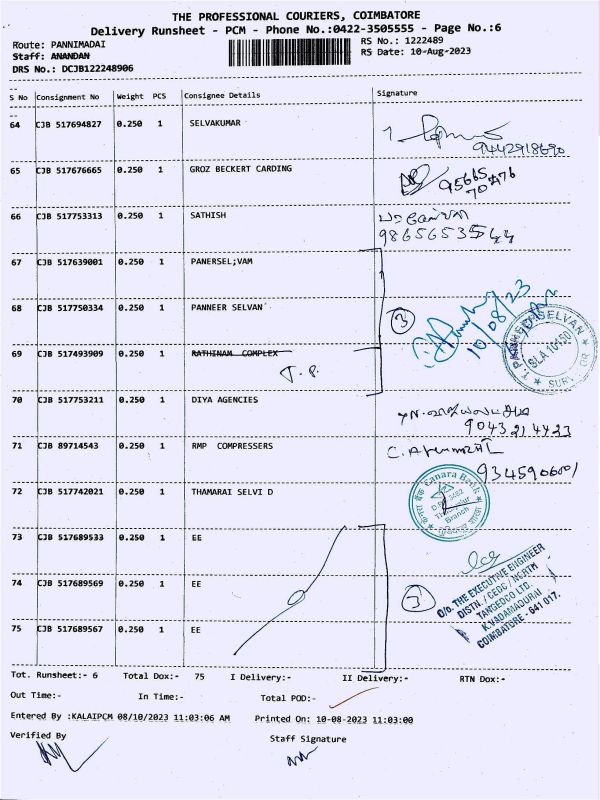 THE PROFESSIONAL COURIERS, COIMBATORE
Delivery Runsheet - PCM - Phone No.:0422-3505555 - Page No.:6
Route: PANNIMADAI
RS No.: 1222489
Staff: ANANDAN
RS Date: 10-Aug-2023
DRS No.: DCJB122248906
S No Consignment No Weight PCS Consignee Details Signature
64 CJB 517694827 0.250 1 SELVAKUMAR
9442918690
65 CJB 517676665 0.250 1 GROZ BECKERT CARDING
95665
70476
66 CJB 517753313 0.250 1 SATHISH
9865653544
67 CJB 517639001 0.250 1 PANERSEL;VAM
68 CJB 517750334 0.250 1 PANNEER SELVAN
3
10/08/23
T. PANNEERSELVAN
SLA 10450
69 CJB 517493909 0.250 1 RATHINAM COMPLEX
T. P.
70 CJB 517753211 0.250 1 DIYA AGENCIES
9043214423
71 CJB 89714543 0.250 1 RMP COMPRESSERS
72 CJB 517742021 0.250 1 THAMARAI SELVI D
Canara Bank
Branch
73 CJB 517689533 0.250 1 EE
74 CJB 517689569 0.250 1 EE
3
O/o. THE EXECUTIVE ENGINEER
DISTN. / CEDC / NORTH
TANGEDCO LTD.
K.VADAMADURAI
COIMBATORE - 641 017.
75 CJB 517689567 0.250 1 EE
Tot. Runsheet:- 6 Total Dox:- 75 I Delivery:- II Delivery:- RTN Dox:-
Out Time:- In Time:- Total POD:-
Entered By :KALAIPCM 08/10/2023 11:03:06 AM Printed On: 10-08-2023 11:03:00
Verified By
Staff Signature